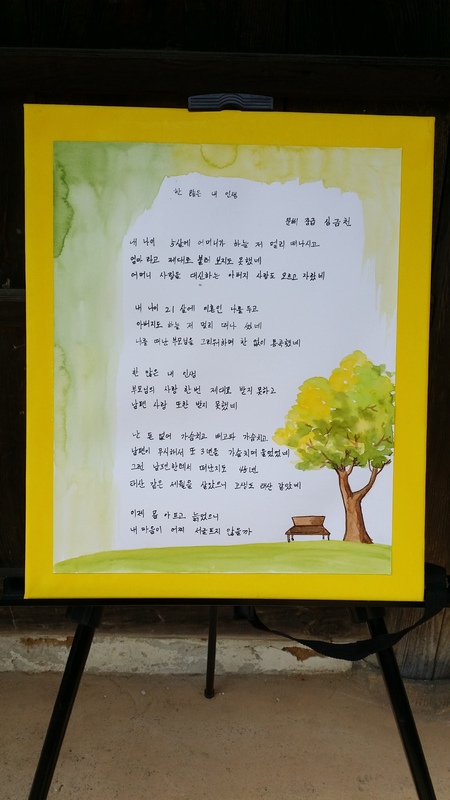 한 많은 내 인생
문해 중급 심금친
내 나이 5살에 어머니가 하늘 저 멀리 떠나시고
엄마 라고 제대로 불러 보지도 못했네
어머니 사랑을 대신하는 아버지 사랑도 모르고 자랐네
내 나이 21 살에 이혼인 나를 두고
아버지도 하늘 저 멀리 떠나 셨네
나를 떠난 부모님을 그리워하며 한 없이 통곡했네
한 많은 내 인생
부모님의 사랑 한번 제대로 받지 못하고
남편 사랑 또한 받지 못했네
난 돈 없어 가슴치고 배고파 가슴치고
남편이 무시해서 또 3번을 가슴치며 울었었네
그런 남편한테서 떠난지도 45년
태산 같은 세월을 살았으니 고생도 태산 같았네
이제 몸 아프고 늙었으니
내 마음이 어찌 서글프지 않을까